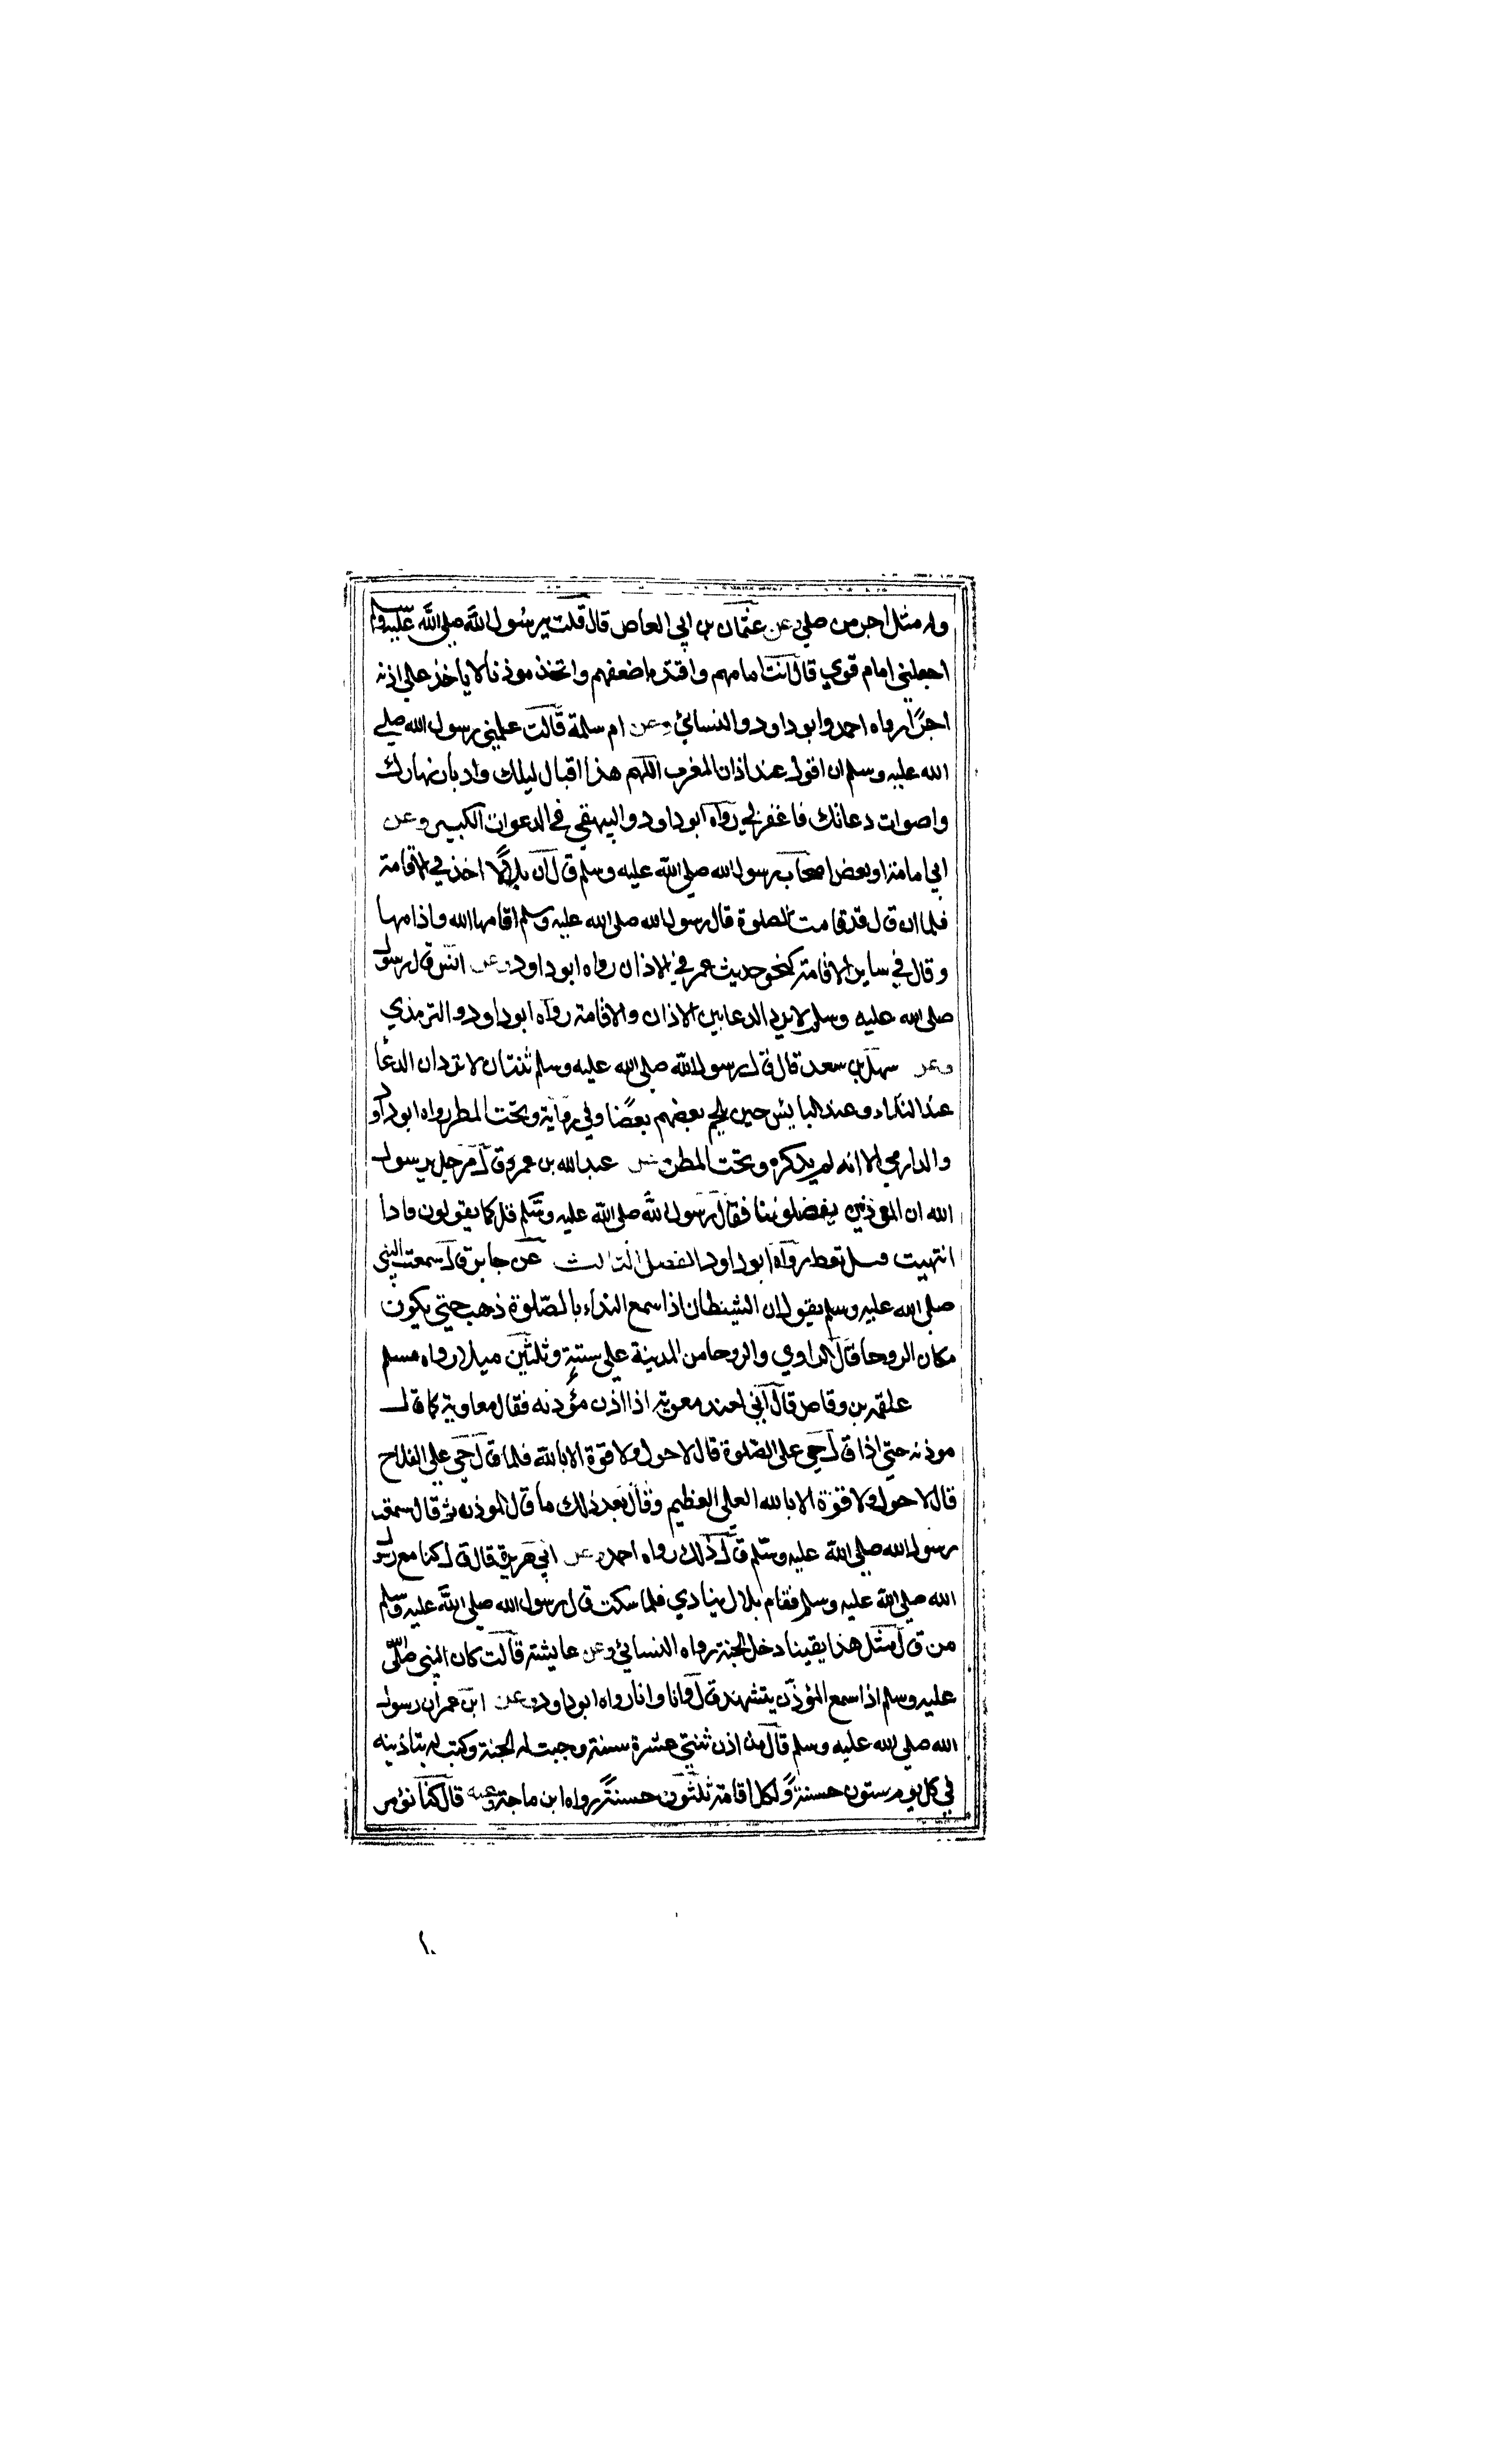 وله مثل اجر من صلي وعن عثمان بن ابي العاص قال قلت يرسول الله صلي الله عليه وسلم
اجعلني امام قومي قال انت امامهم واقتد باضعفهم واتخذ موذنا لا يأخذ علي اذنه
اجرًا رواه احمد وابو داود والنسائي وعن ام سلمة قالت علمني رسول الله صلي
الله عليه وسلم ان اقول عند اذان المغرب اللهم هذا اقبال ليلك وادبار نهارك
واصوات دعاتك فاغفر لي رواه ابو داود والبيهقي في الدعوات الكبير وعن
ابي امامة او بعض اصحاب رسول الله صلي الله عليه وسلم قال ان بلالًا اخذ في الاقامة
فلما ان قال قد قامت الصلوة قال رسول الله صلي الله عليه وسلم اقامها الله واذامها
وقال في ساير الاقامة كنحو حديث عمر في الاذان رواه ابو داود وعن انس قال رسول
صلي الله عليه وسلم لا يرد الدعا بين الاذان والاقامة رواه ابو داود والترمذي
وعن سهل بن سعد قال قال رسول الله صلي الله عليه وسلم ثنتان لا تردان الدعا
عند النداء وعند البايس حين يلحم بعضهم بعضًا وفي رواية وتحت المطر رواه ابو داود
والدارمي الا انه لم يذكره وتحت المطر وعن عبد الله بن عمرو قال رجل يرسول
الله ان المؤذنين يفضلوننا فقال رسول الله صلي الله عليه وسلم قل كما يقولون فاذا
انتهيت فسل تعط رواه ابو داود الفصل الثالث عن جابر قال سمعت النبي
صلي الله عليه وسلم يقول ان الشيطان اذا سمع النداء بالصلوة ذهب حتي يكون
مكان الروحا قال الراوي والروحا من المدينة علي ستةٍ وثلثين ميلا رواه مسلم
علقمه بن وقاص قال اني لعند معوية اذا اذن مؤذنه فقال معاوية كما قال
موذنه حتي اذا قال حي علي الصلوة قال لا حول ولا قوة الا بالله فلما قال حي علي الفلاح
قال لا حول ولا قوة الا بالله العلي العظيم وقال بعد ذلك ما قال الموذن ثم قال سمعت
رسول الله صلي الله عليه وسلم قال ذلك رواه احمد وعن ابي هريرة قال قال كنا مع رسول
الله صلي الله عليه وسلم فقام بلال ينادي فلما سكت قال رسول الله صلي الله عليه وسلم
من قال مثل هذا يقينا دخل الجنة رواه النسائي وعن عايشة قالت كان النبي صلي
عليه وسلم اذا سمع المؤذن يتشهد قال وانا وانا رواه ابو داود وعن ابن عمر ان رسول
الله صلي الله عليه وسلم قال من اذن ثنتي عشرة سنة وجبت له الجنة وكتب له بتاذينه
في كل يوم ستون حسنةً ولكل اقامة ثلثون حسنةً رواه ابن ماجة وعنه قال كنا نؤمر